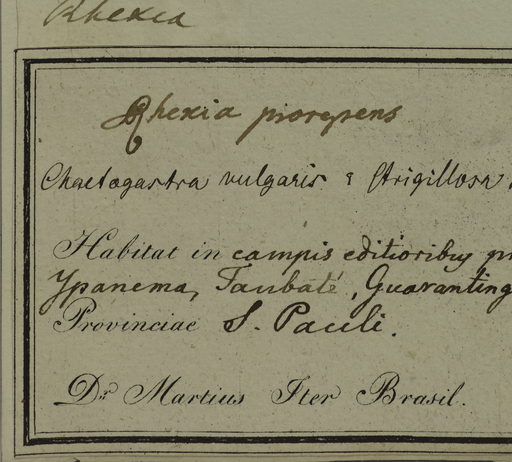 Rhexia
Rhexia
Chaetogastra vulgaris ε strigillosa
Habitat in campis editioribus
Ypanema, Taubaté, Guaranting
Provinciae S. Pauli.
Dr. Martius Iter Brasil.